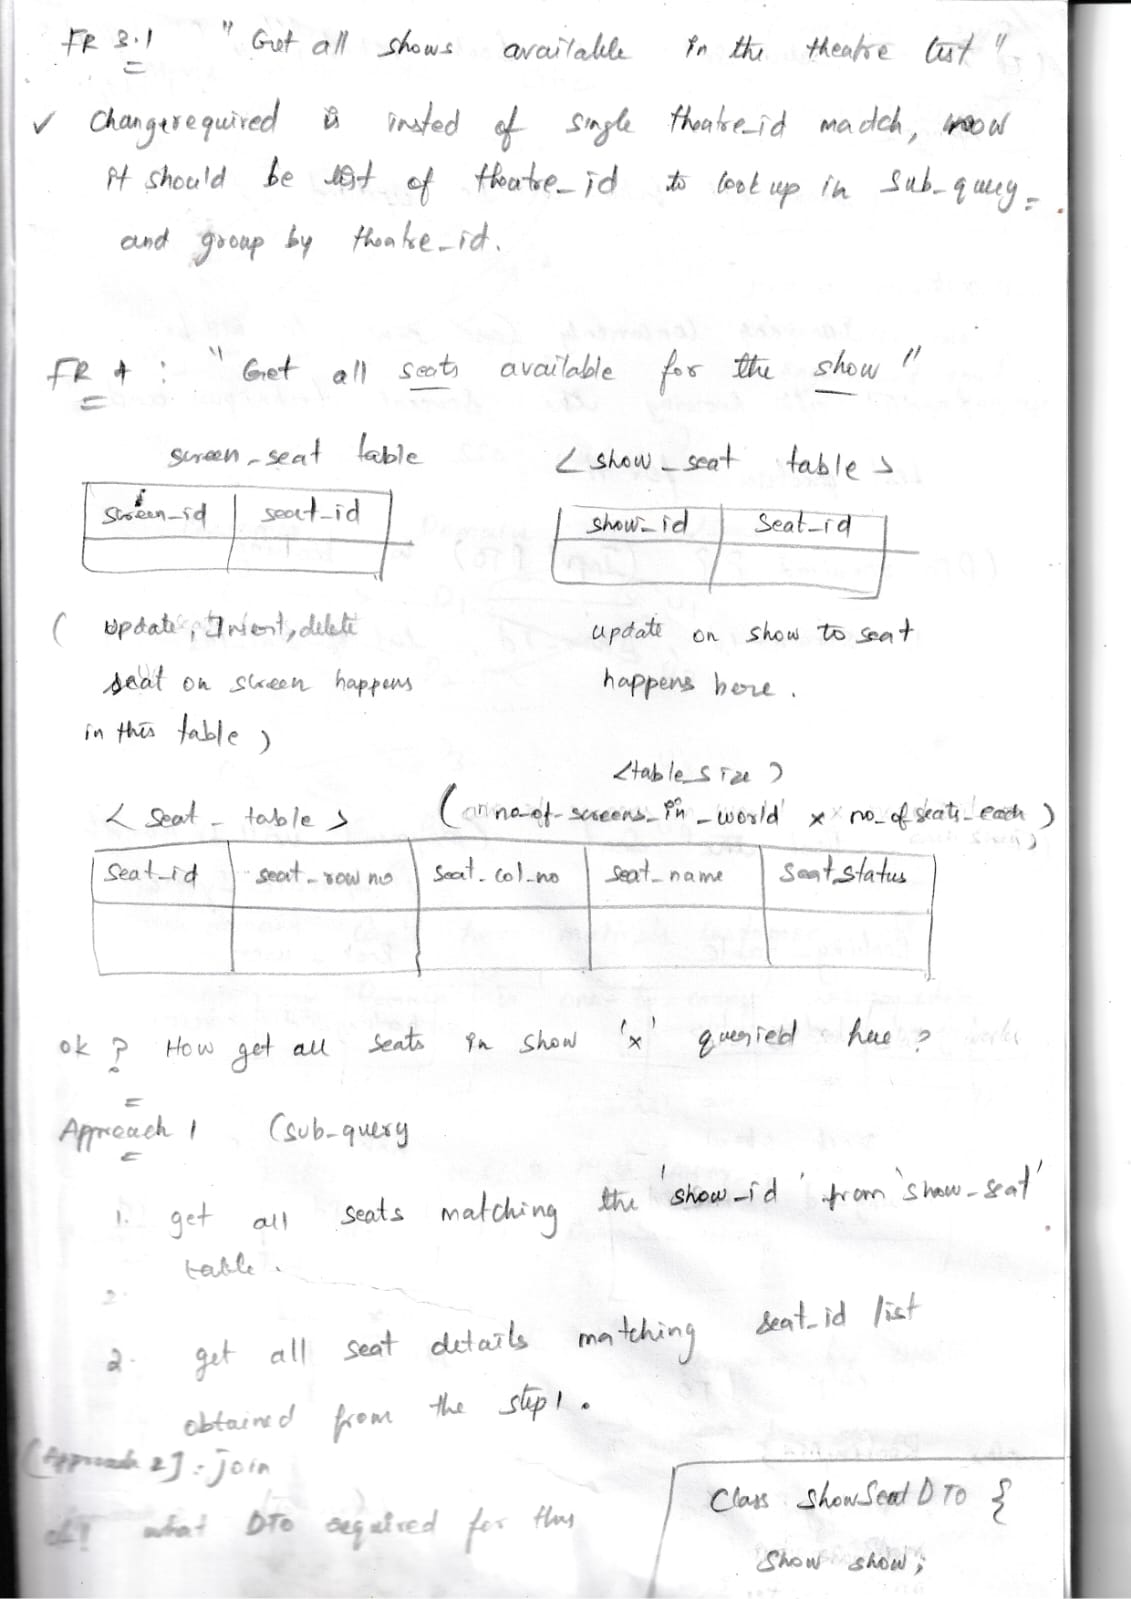 FR 3.1 " Get all shows available in the theatre list "
✓ Change required is insted of single theatre_id match, now
it should be list of theatre_id to look up in sub-query
and group by theatre_id.
FR 4 : " Get all seats available for the show "
screen_seat table
screen_id | seat_id
( update, Insert, delete
seat on screen happens
in this table )
< show_seat table >
show_id | seat_id
update on show to seat
happens here .
<table_size>
< seat_table > ( no_of_screens_in_world x no_of seats_each )
seat_id | seat_row no | seat_col_no | seat_name | seat_status
ok ? How get all seats in show 'x' queried here ?
Approach 1 (sub-query
1. get all seats matching the 'show_id' from 'show_seat'
table .
2. get all seat details matching seat_id list
obtained from the step 1 .
(Approach 2] : join
ok! what DTO required for this
Class ShowSeatDTO {
Show show ;